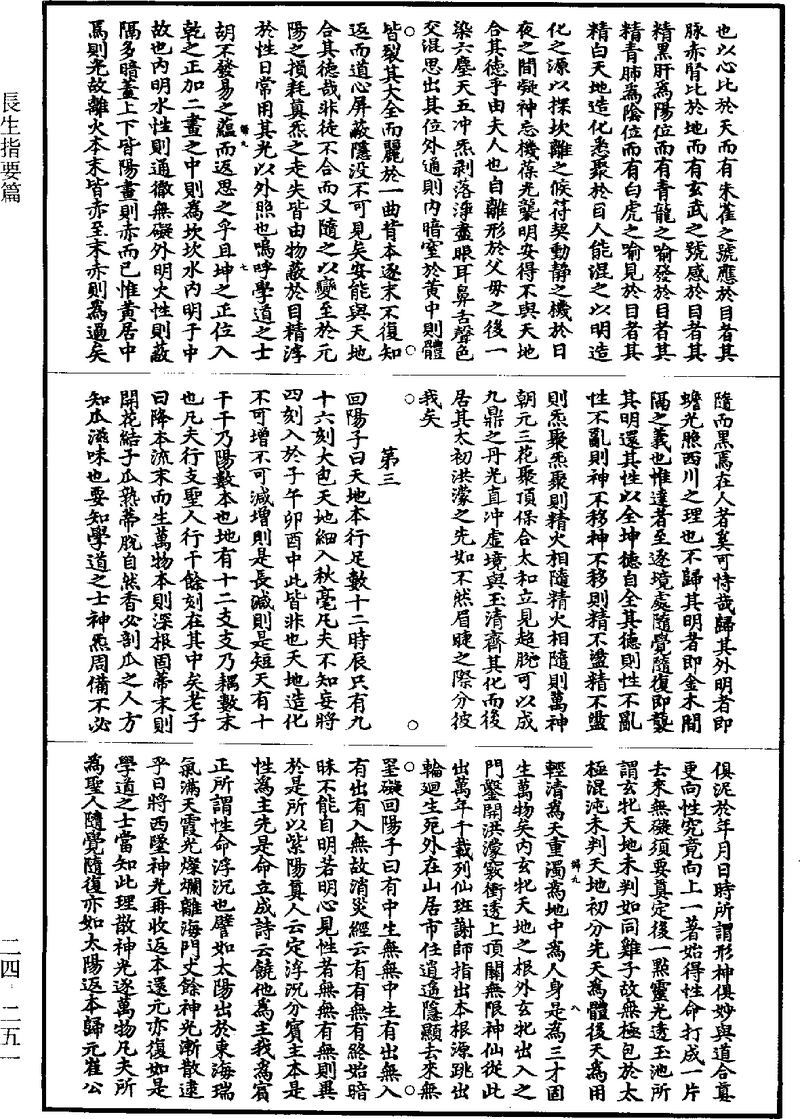 也以心比於天而有朱雀之號應於目者其
脉赤腎比於地而有玄武之號感於目者其
精黑肝為陽位而有青龍之喻發於目者其
精青肺為陰位而有白虎之喻見於目者其
精白天地造化悉聚於目人能混之以明造
化之源以探坎離之候苻契動靜之機於日
夜之間凝神忘機葆光襲明安得不與天地
合其德乎由夫人也自離形於父母之後一
染六塵天五冲炁剥落淨盡眼耳鼻舌聲色
交混思出其位外通則内暗室於黄中則體
皆裂其大全而麗於一曲背本逐末不復知
返而道心屏蔽隱没不可見矣安能與天地
合其德哉非徒不合而又隨之以變至於元
陽之損耗真炁之走失皆由物蔽於目精淳
於性日常用其光以外照也嗚呼學道之士
胡不發易之蘊而返思之乎且坤之正位入
乾之正加二畫之中則為坎坎水内明于中
故也内明水性則通徹無礙外明火性則蔽
隔多暗蓋上下皆陽畫則赤而已惟黄居中
焉則光故離火本末皆赤至末赤則為過矣
隨而黑焉在人者奚可恃哉歸其外明者即
蟾光照西川之理也不歸其明者即金木間
隔之義也惟達者至逐境處隨覺隨復即襲
其明還其性以全坤德自全其德則性不亂
性不亂則神不移神不移則精不盪精不盪
則炁聚炁聚則精火相隨精火相隨則萬神
朝元三花聚頂保合太和立見超脱可以成
九鼎之丹光直冲虚境與玉清齊其化而後
居其太初洪濛之先如不然眉睫之際分彼
我矣
第三
回陽子曰天地本行足數十二時辰只有九
十六刻大包天地細入秋毫凡夫不知妄將
四刻入於子午卯酉中此皆非也天地造化
不可增不可減增則是長減則是短天有十
干干乃陽數本也地有十二支支乃耦數末
也凡夫行支聖人行干餘刻在其中矣老子
曰降本流末而生萬物本則深根固蒂末則
開花結子瓜熟蒂脱自然香必剖瓜之人方
知瓜滋味也要知學道之士神炁周備不必
俱泥於年月日時所謂形神俱妙與道合真
更向性究竟向上一著始得性命打成一片
去來無礙須要真定後一點靈光透玉池所
謂玄牝天地未判如同雞子故無極包於太
極混沌未判天地初分先天為體後天為用
輕清為天重濁為地中為人身是為三才固
生萬物矣内玄牝天地之根外玄牝出入之
門鑿開洪濛竅衝透上頂關無限神仙從此
出萬年千載列仙班謝師指出本根源跳出
輪迴生死外在山居市任逍遥隱顯去來無
罣礙回陽子曰有中生無無中生有出無入
有出有入無故消災經云有有無有終始暗
昧不能自明若明心見性者無無有無則異
於是所以紫陽真人云定浮沉分賓主本是
性為主先是命立成詩云饒他為主我為賓
正所謂性命浮沉也譬如太陽出於東海瑞
氣滿天霞光燦爛離海門丈餘神光漸散逮
乎日將西墜神光再收返本還元亦復如是
學道之士當知此理散神光逐萬物凡夫所
為聖人隨覺隨復亦如太陽返本歸元崔公
長生指要篇
二四·二五一